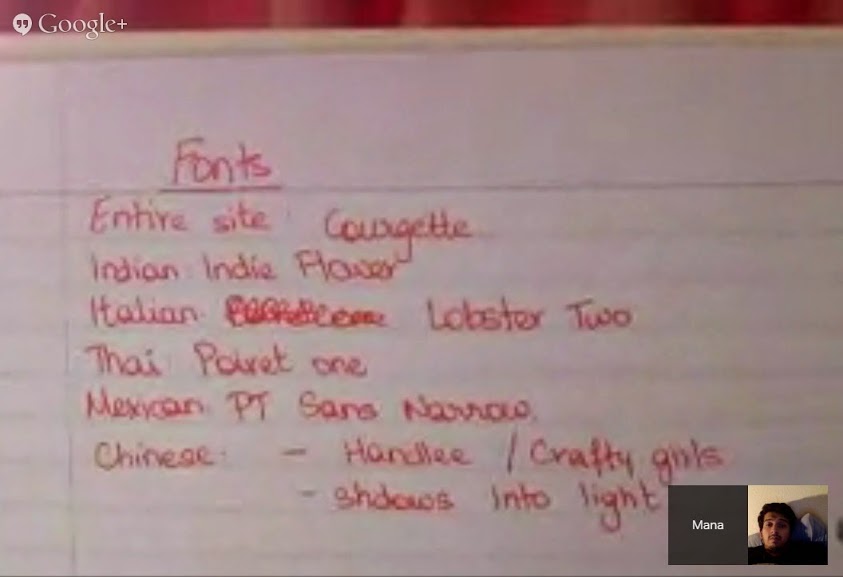 Google+
Fonts
Entire site: Courgette
Indian: Indie Flower
Italian: Lobster Two
Thai: Poiret one
Mexican: PT Sans Narrow.
Chinese: - Handlee / Crafty girls
- shdows into light
Mana